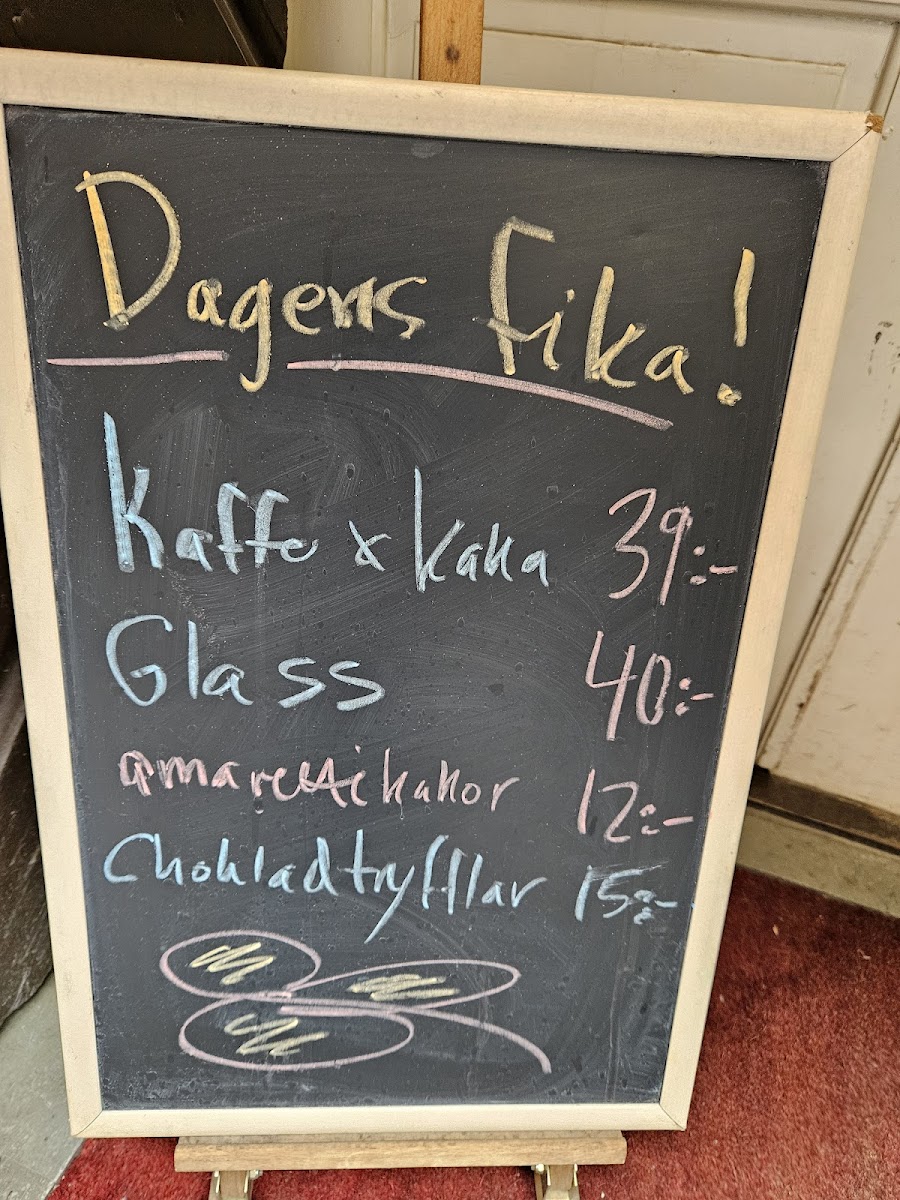 Dagens fika!
Kaffe & kaka 39:-
Glass 40:-
amarettikakor 12:-
Chokladtryfflar 15:-